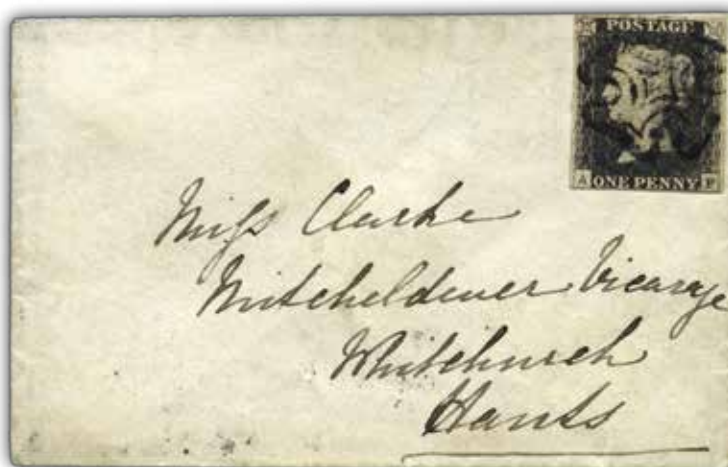 POSTAGE
A ONE PENNY
Miss Clarke
Mitcheldever Vicarage
Whitchurch
Hants